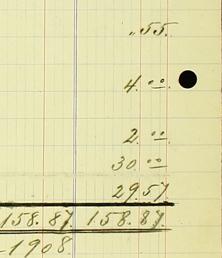 .. 55.
4. 00
2. 00
30 00
29.57
158.87 158.87
-1908